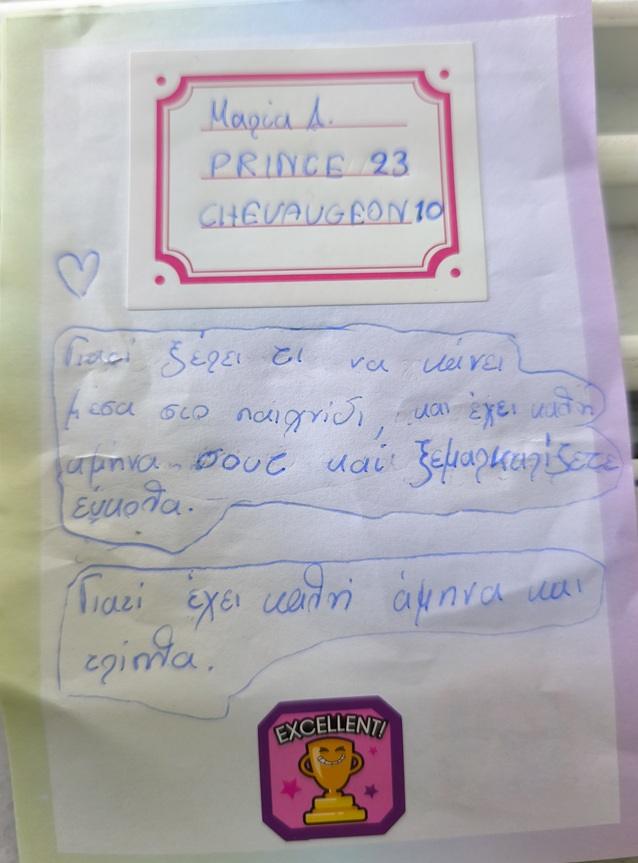 Μαρία Δ.
PRINCE 23
CHEVAUGEON 10
Γιατί ξέρει τι να κάνει
μέσα στο παιχνίδι, και έχει καλή
αμηνα σουτ και ξεμαρκαρίζετε
εύκολα.
Γιατί έχει καλή άμηνα και
τρίπλα.
EXCELLENT!